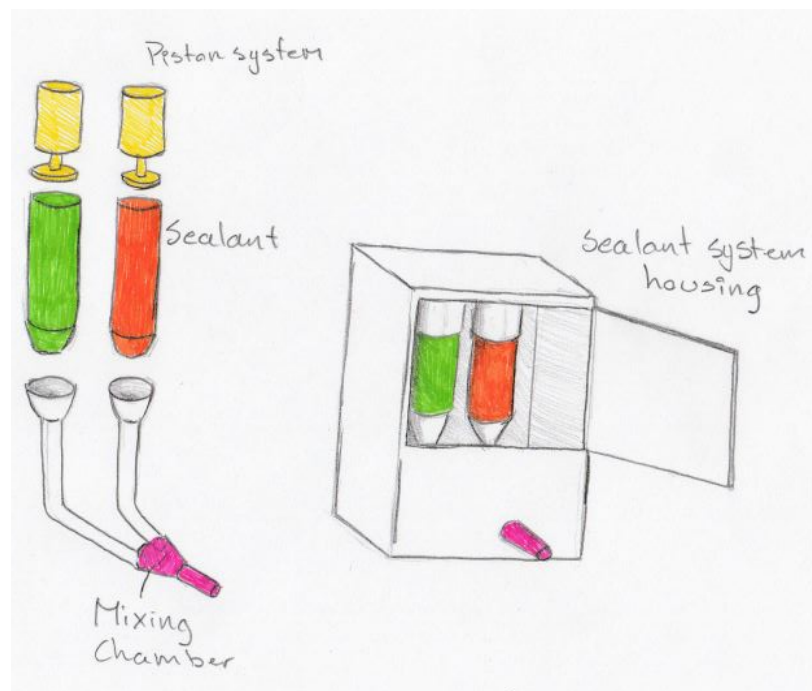 Piston system
Sealant
Sealant system
housing
Mixing
Chamber